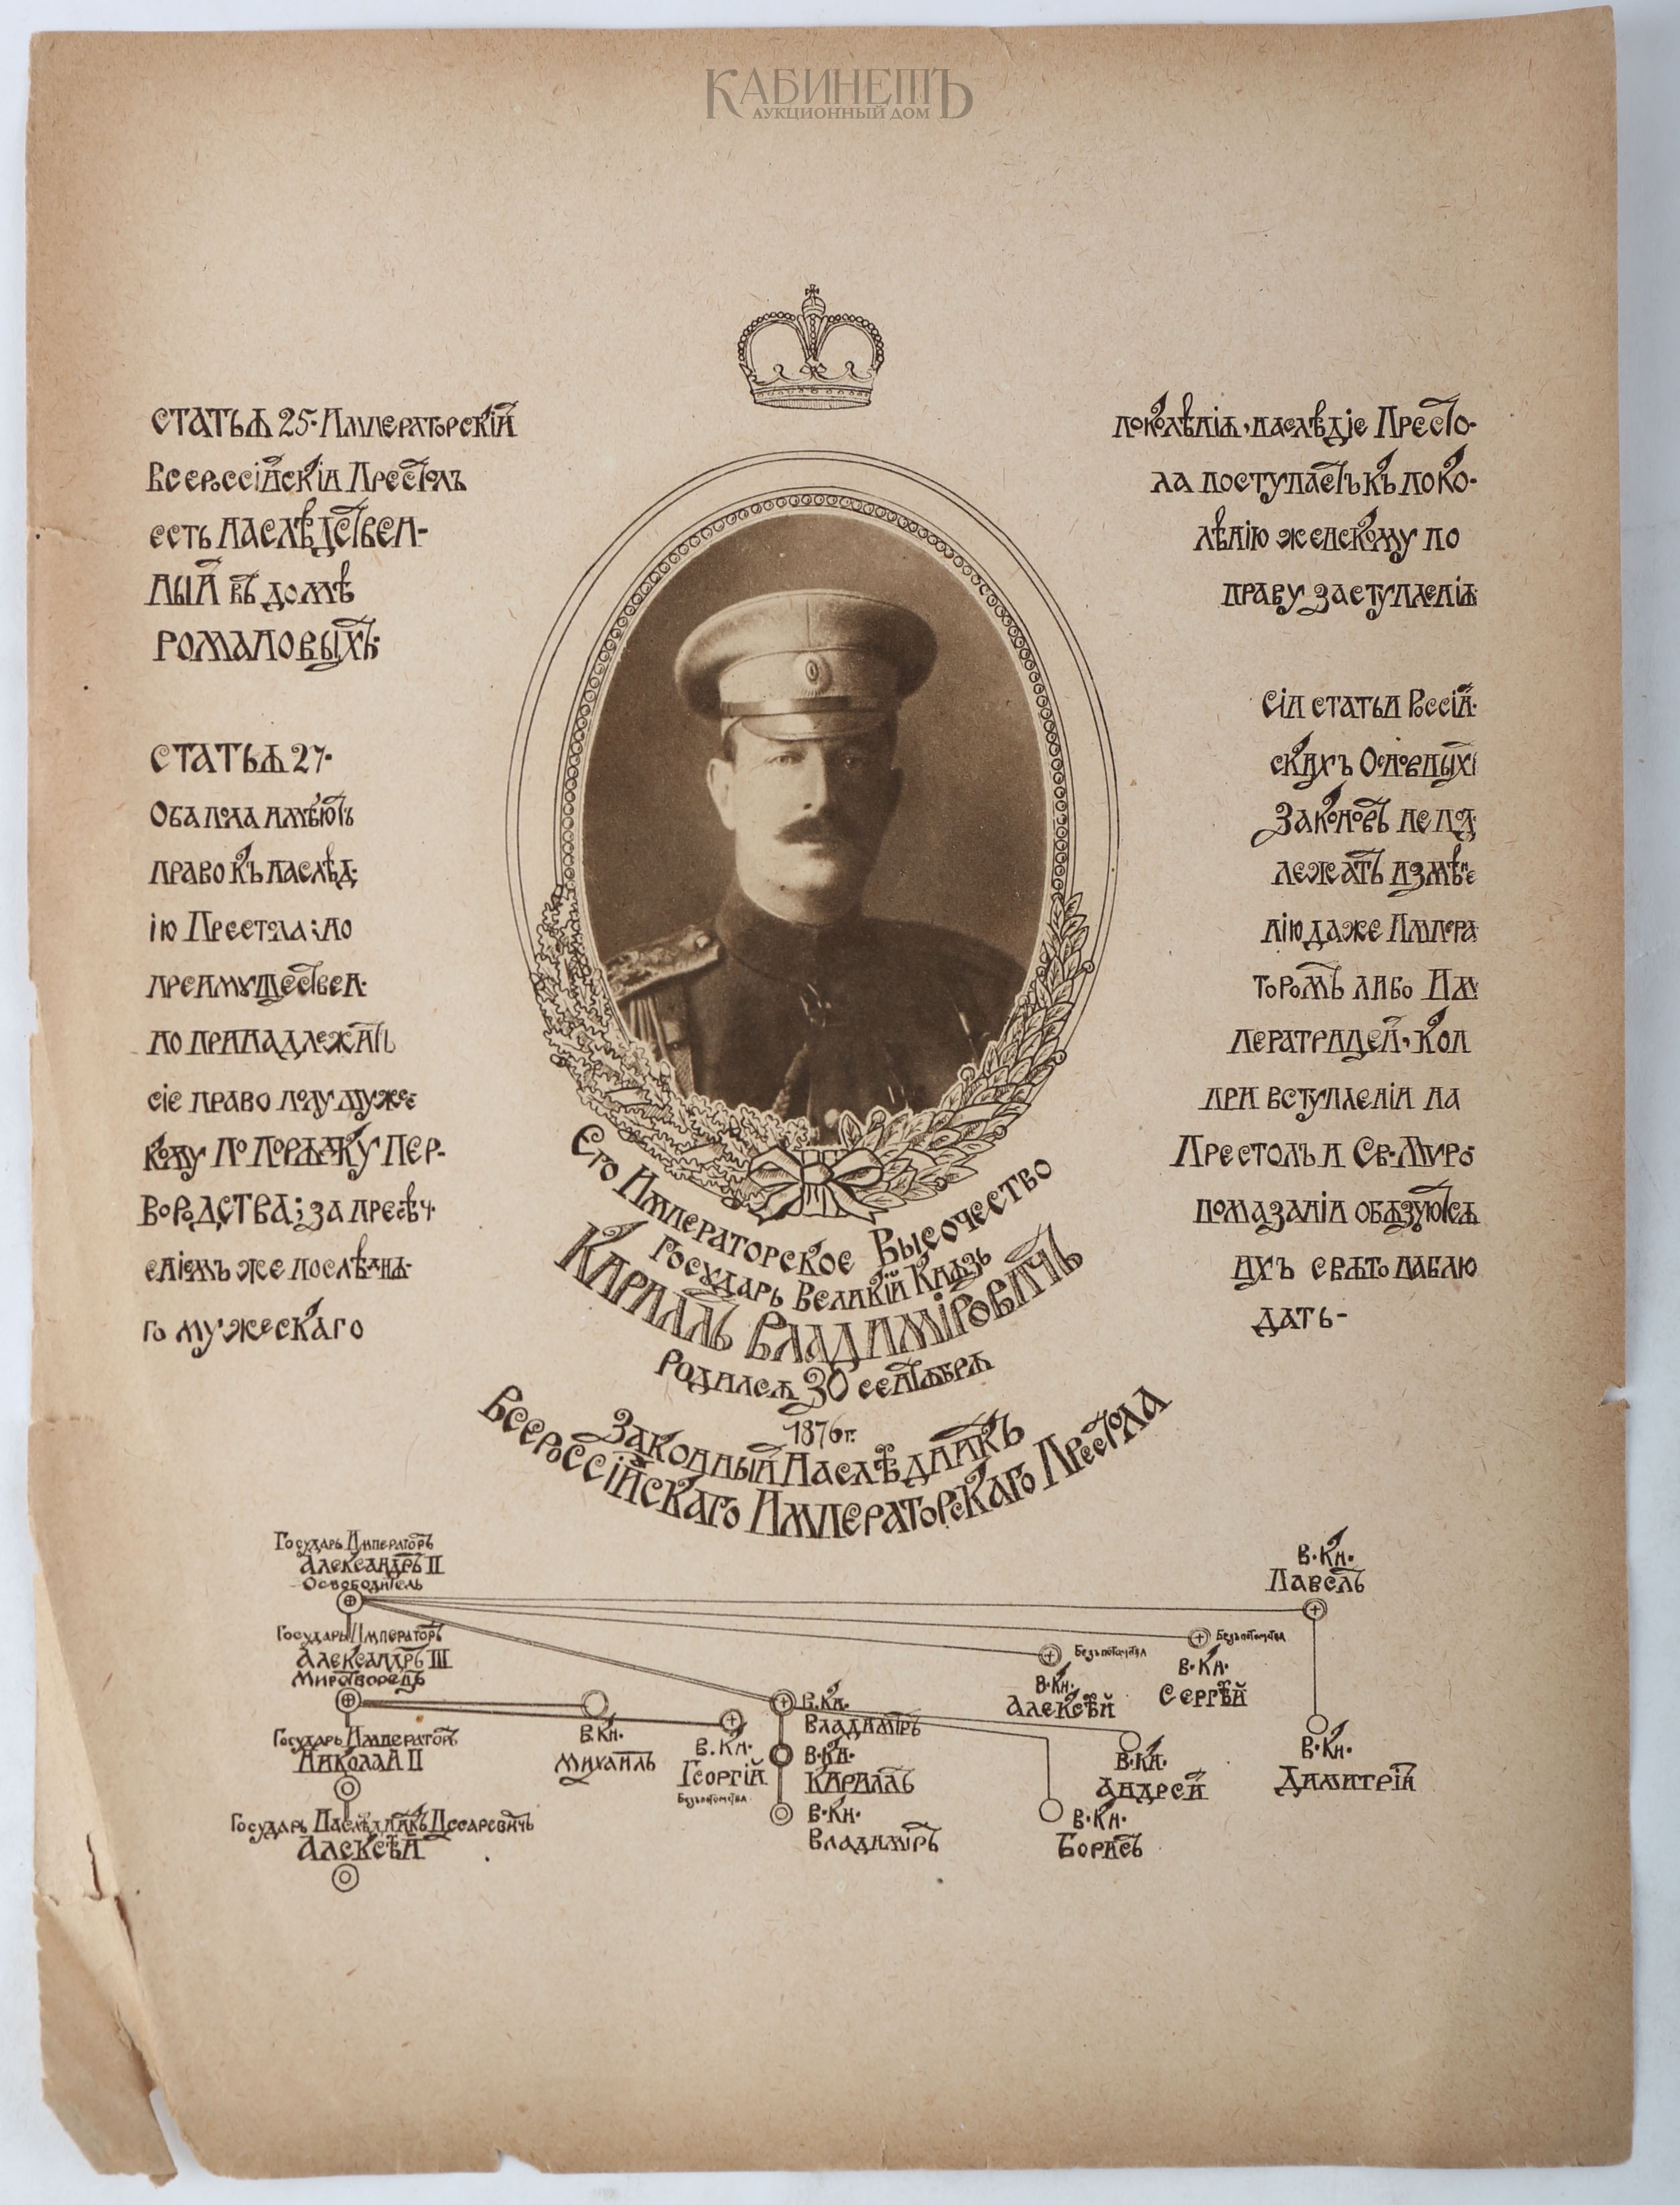 КАБИНЕТЪ
АУКЦИОННЫЙ ДОМ
СТАТЬЯ 25. ИМПЕРАТОРСКІЙ
ВСЕРОССІЙСКІЙ ПРЕСТОЛЪ
ЕСТЬ НАСЛѢДСТВЕН-
НЫЙ ВЪ ДОМѢ
РОМАНОВЫХЪ.
СТАТЬЯ 27.
ОБА ПОЛА ИМѢЮТЪ
ПРАВО КЪ НАСЛѢД-
ІЮ ПРЕСТОЛА; НО
ПРЕИМУЩЕСТВЕН-
НО ПРИНАДЛЕЖИТЪ
СІЕ ПРАВО ПОЛУ МУЖЕС
КОМУ ПО ПОРЯДКУ ПЕР-
ВОРОДСТВА; ЗА ПРЕСѢЧ-
ЕНІЕМЪ ЖЕ ПОСЛѢДНЯ-
ГО МУЖЕСКАГО
ПОКОЛѢНІЯ, НАСЛѢДІЕ ПРЕСТО-
ЛА ПОСТУПАЕТЪ КЪ ПОКО-
ЛѢНІЮ ЖЕНСКОМУ ПО
ПРАВУ ЗАСТУПЛЕНІЯ.
СІИ СТАТЬИ РОССІЙ-
СКИХЪ ОСНОВНЫХЪ
ЗАКОНОВЪ НЕ ПОД-
ЛЕЖАТЪ ИЗМѢНЕ
НІЮ ДАЖЕ ИМПЕРА
ТОРОМЪ ЛИБО ИМ-
ПЕРАТРИЦЕЙ, КОИ
ПРИ ВСТУПЛЕНІИ НА
ПРЕСТОЛЪ И СВ. МИРО
ПОМАЗАНІИ ОБЯЗУЮТСЯ
ИХЪ СВЯТО НАБЛЮ
ДАТЬ-
ЕГО ИМПЕРАТОРСКОЕ ВЫСОЧЕСТВО
ГОСУДАРЬ ВЕЛИКІЙ КНЯЗЬ
КИРИЛЛЪ ВЛАДИМІРОВИЧЪ
РОДИЛСЯ 30 СЕНТЯБРЯ
1876 г.
ЗАКОННЫЙ НАСЛѢДНИКЪ
ВСЕРОССІЙСКАГО ИМПЕРАТОРСКАГО ПРЕСТОЛА
ГОСУДАРЬ ИМПЕРАТОРЪ
АЛЕКСАНДРЪ II
ОСВОБОДИТЕЛЬ
В. КН.
ПАВЕЛЪ
ГОСУДАРЬ ИМПЕРАТОРЪ
АЛЕКСАНДРЪ III
МИРОТВОРЕЦЪ
БЕЗЪ ПОТОМСТВА
В. КН.
АЛЕКСѢЙ
БЕЗЪ ПОТОМСТВА
В. КН.
СЕРГѢЙ
ГОСУДАРЬ ИМПЕРАТОРЪ
НИКОЛАЙ II
В. КН.
МИХАИЛЪ
В. КН.
ГЕОРГІЙ
БЕЗЪ ПОТОМСТВА
В. КН.
ВЛАДИМІРЪ
В. КН.
КИРИЛЛЪ
В. КН.
ВЛАДИМІРЪ
В. КН.
АНДРЕЙ
В. КН.
БОРИСЪ
В. КН.
ДИМИТРІЙ
ГОСУДАРЬ НАСЛѢДНИКЪ ЦЕСАРЕВИЧЪ
АЛЕКСѢЙ